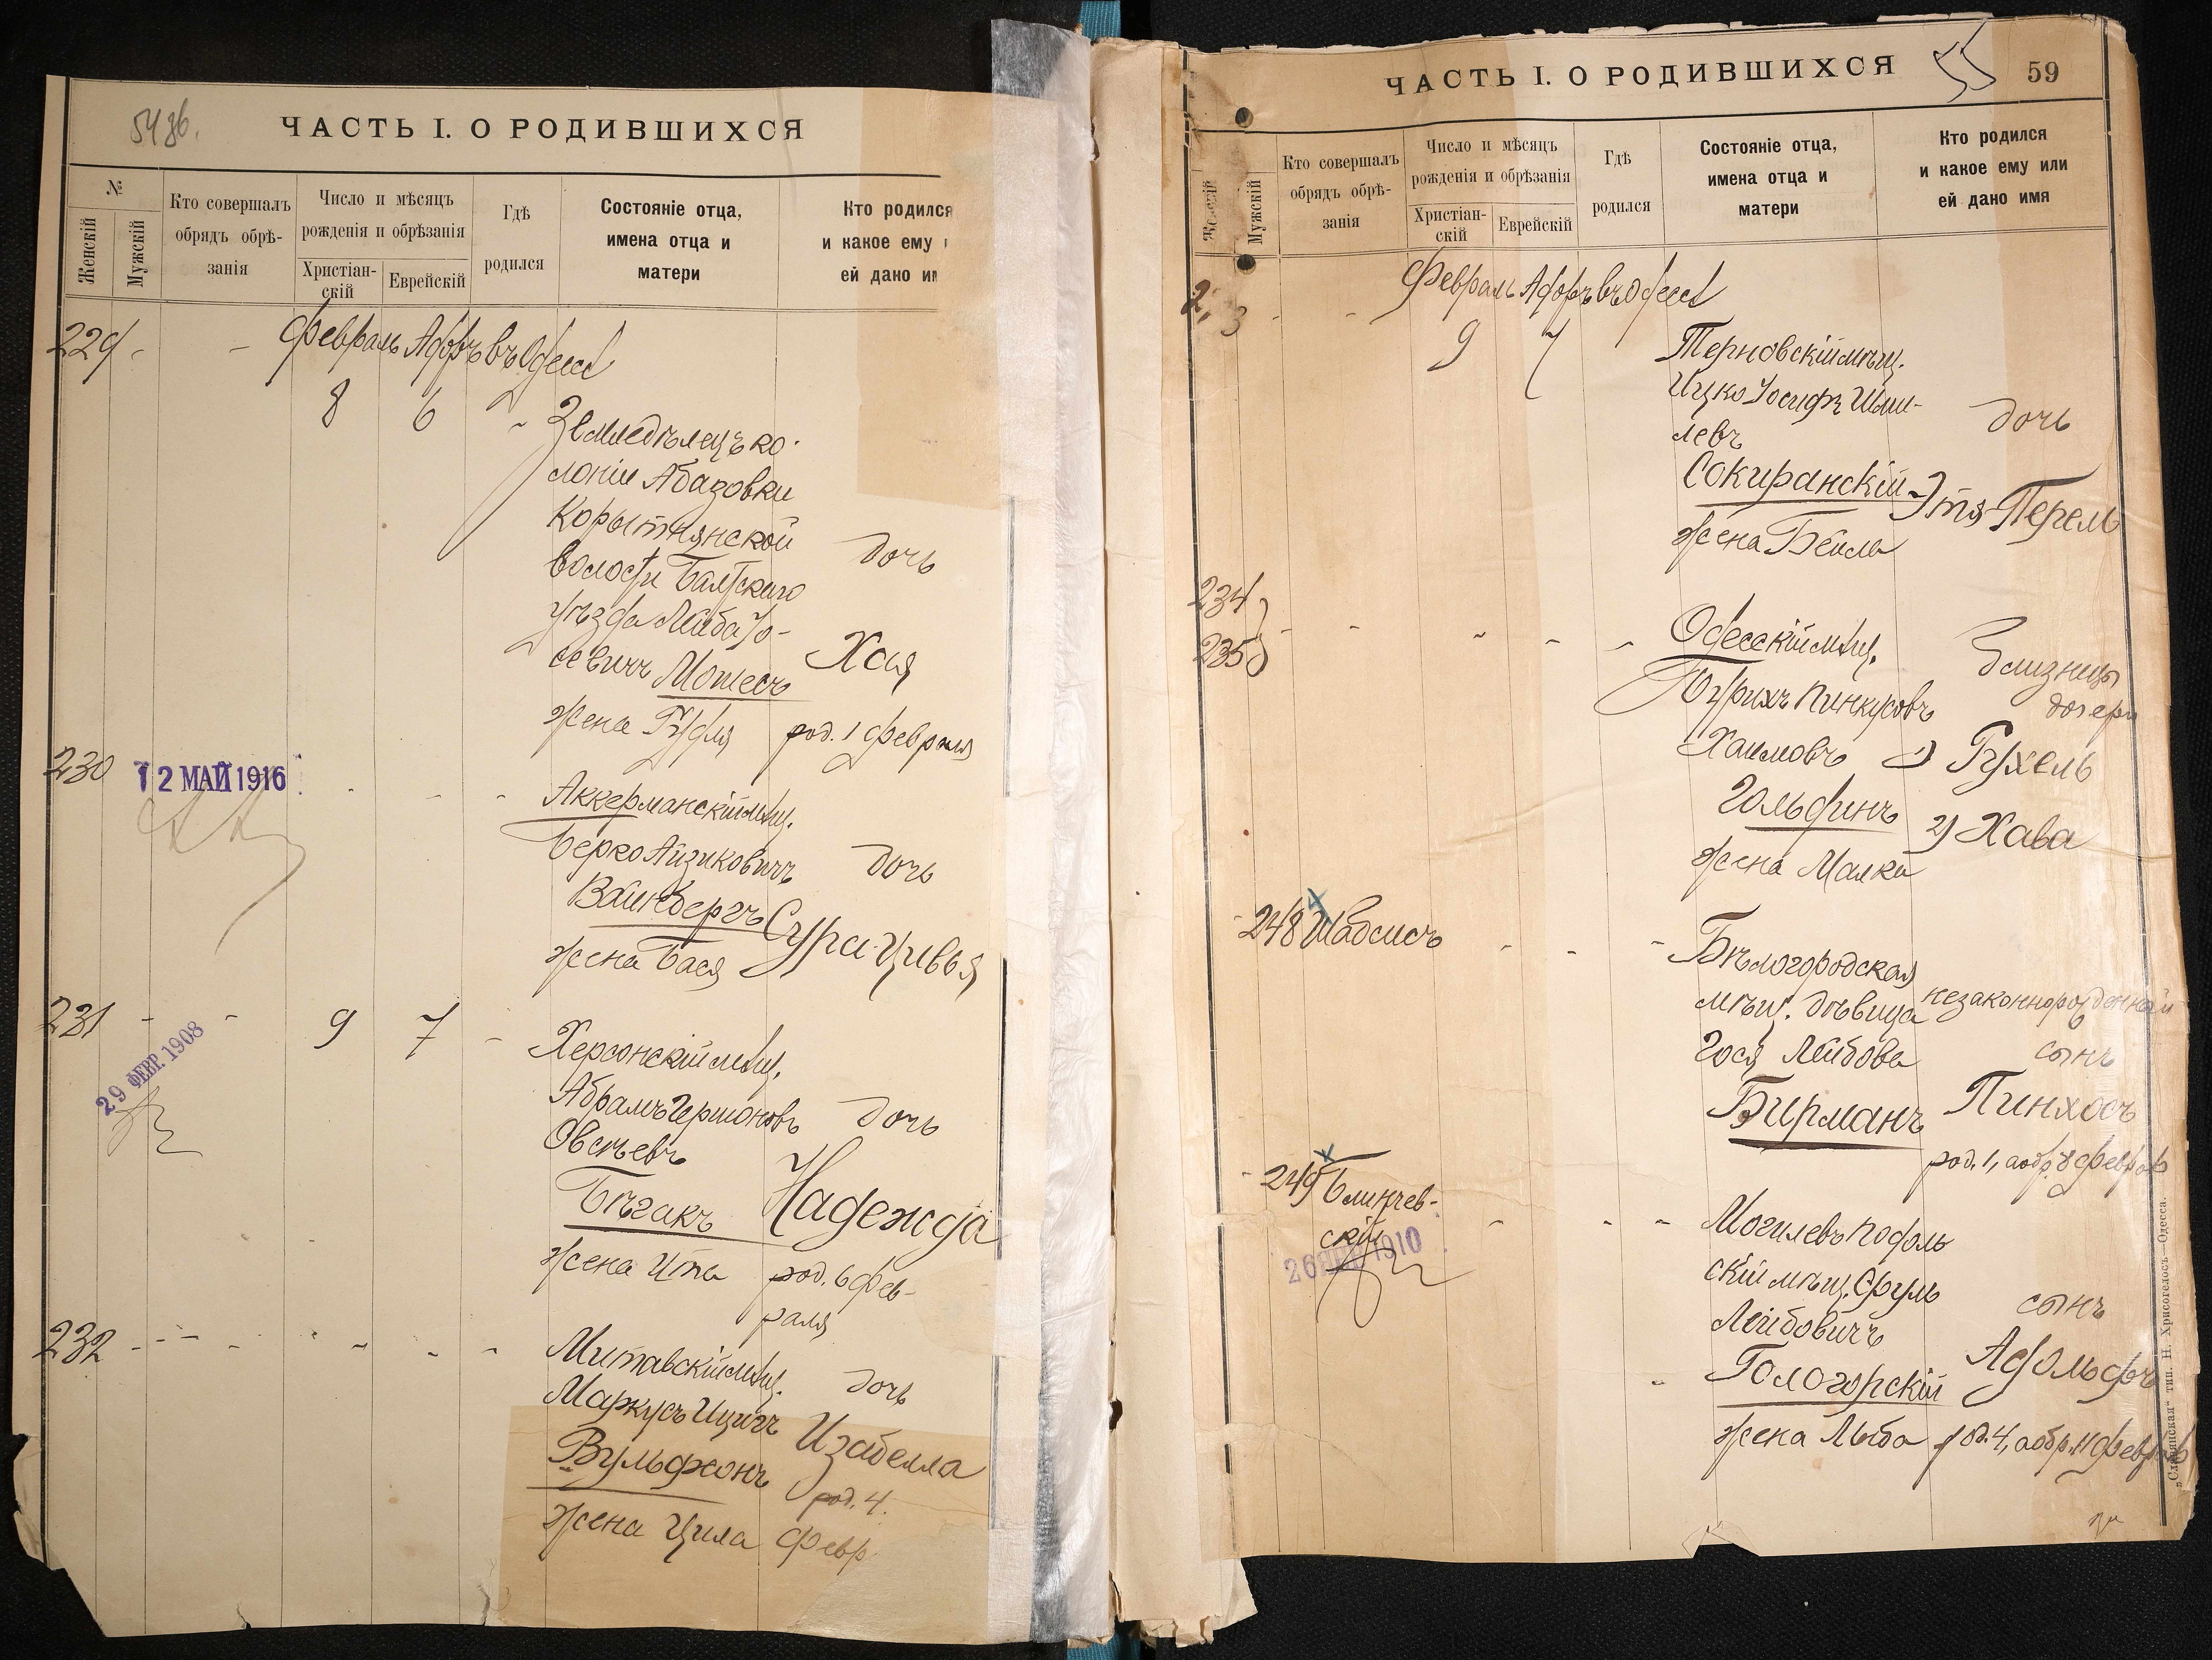 54 зб.
ЧАСТЬ I. О РОДИВШИХСЯ
№
Женскій
Мужскій
Кто совершалъ
обрядъ обрѣ-
занія
Число и мѣсяцъ
рожденія и обрѣзанія
Христіан-
скій
Еврейскій
Гдѣ
родился
Состояніе отца,
имена отца и
матери
Кто родился
и какое ему
ей дано
Февраль Адоръ въ Одессѣ
229 - -
8 6 - Земледѣлецъ ко-
лоніи Абазовки
Корытнянской
волости Балтскаго
уѣзда Лейба Іо-
севичъ Мошесъ
жена Рухля
дочь
Хая
род. 1 февраля
230
12 МАЙ 1916
Аккерманскій мѣщ.
Берко Айзиковичъ
Вайнбергъ
жена Бася
дочь
Сура-Цивья
231 - - 9 7 -
29 ФЕВР. 1908
Херсонскій мѣщ.
Абрамъ Гершоновъ
Овсѣевъ
Бѣгакъ
жена Ита
дочь
Надежда
род. 6 фев-
раля
232 - - - - - -
Митавскій мѣщ.
Маркусъ Ицигъ
Вульфсонъ
жена Цила
дочь
Изабелла
род. 4.
Февр.
ЧАСТЬ I. О РОДИВШИХСЯ
55
59
Женскій
Мужскій
Кто совершалъ
обрядъ обрѣ-
занія
Число и мѣсяцъ
рожденія и обрѣзанія
Христіан-
скій
Еврейскій
Гдѣ
родился
Состояніе отца,
имена отца и
матери
Кто родился
и какое ему или
ей дано имя
Февраль Адоръ въ Одессѣ
9 7
Терновскій мѣщ.
Ицко Іосифъ Шми-
левъ
Сокиранскій
жена Бейла
дочь
Этя-Перель
234
235
Одесскій мѣщ.
Пинкусовъ
Хаимовъ
Гольфинъ
жена Малка
близнецы
дочери
1) Рухель
2) Хава
248 Шабсисъ
Бѣлогородская
мѣщ. дѣвица
Гося Лейбова
Бирманъ
незаконнорожденный
сынъ
Пинхосъ
род. 1, а обр. 8 февраля
249 Блинчев-
скій
26 1910
Могилевъ Подоль-
скій мѣщ. Сруль
Лейбовичъ
Гологорскій
жена Лыба
сынъ
Адольфъ
род. 4, а обр. 11 февраля
„Славянская“ тип. Н. Хрисогелосъ—Одесса.